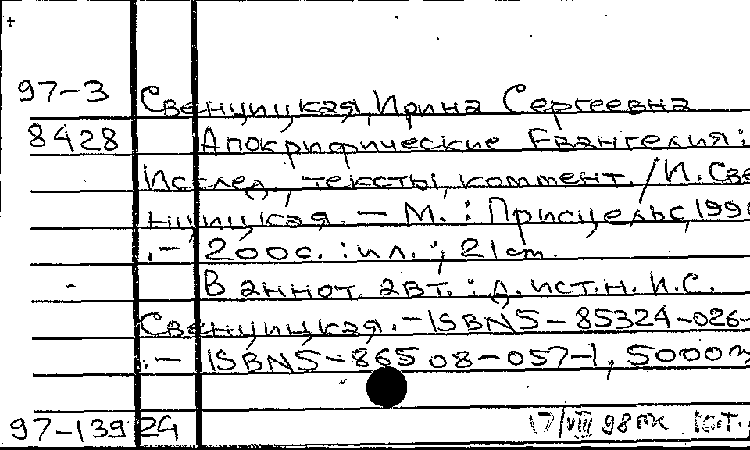 97-3 Свенцицкая, Ирина Сергеевна
8428 Апокрифические Евангелия:
Исслед., тексты, коммент. / И. Све
нцицкая. - М. : Присцельс, 199
.- 200с. : ил. ; 21 см.
В аннот. авт. : д. ист. н. И.С.
Свенцицкая. - ISBN 5-85324-026-
.- ISBN 5-86508-057-1, 5000
97-13924 17/VIII 98